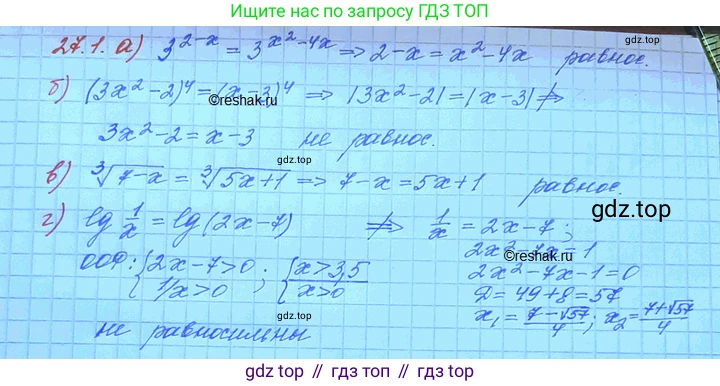 Ищите нас по запросу ГДЗ ТОП
27.1. а) 3^(2-x) = 3^(x²-4x) ⇒ 2-x = x²-4x равнос.
gdz.top
б) (3x²-2)⁴ = (x-3)⁴ ⇒ |3x²-2| = |x-3| ⇏
©reshak.ru
3x²-2 = x-3 не равнос.
gdz.top
в) ∛(7-x) = ∛(5x+1) ⇒ 7-x = 5x+1 равнос.
gdz.top
г) lg 1/x = lg(2x-7) ⇏ 1/x = 2x-7;
2x²-7x=1
ООФ: {2x-7>0; 1/x>0; {x>3,5 x>0
©reshak.ru
2x²-7x-1=0
Д=49+8=57
x₁ = (7-√57)/4; x₂ = (7+√57)/4
не равносильны
gdz.top
gdz.top // гдз.топ // гдз.top